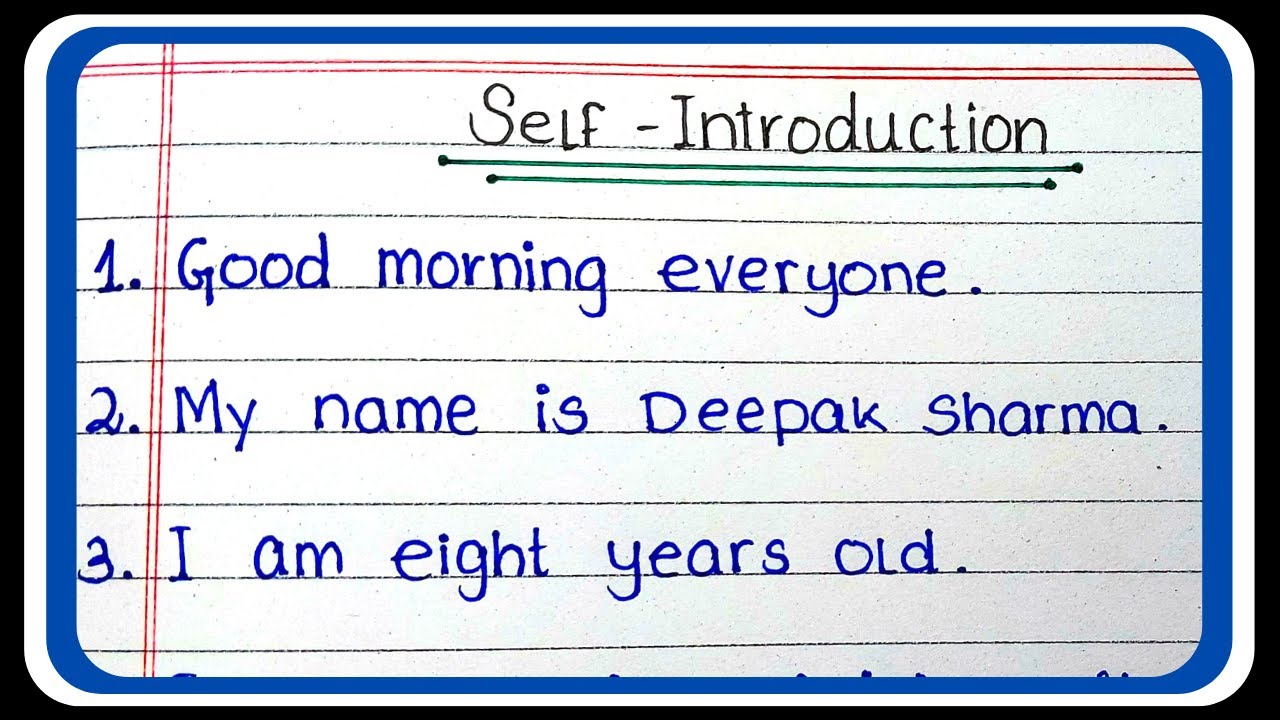 Self - Introduction
1. Good morning everyone.
2. My name is Deepak Sharma.
3. I am eight years old.